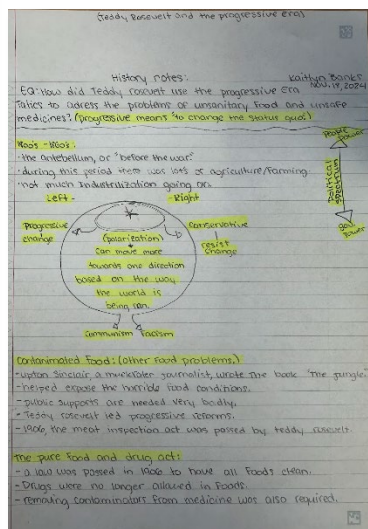 (Teddy Rosevelt and the progressive era)
History notes:
Kaitlyn Banks
Nov. 19, 2024
EQ: How did Teddy roscvelt use the progressive era
Tatics to adress the problems of unsanitary food and unsafe
medicines? (progressive means "to change the status quo.")
1800's - 1860's:
- the antebellum, or "before the war."
- during this period there was lots of agriculture/farming.
- not much Industrilization going on.
Left -
- Right
Progressive
change
Conservative
resist
change
(polarization)
can move more
towards one direction
based on the way
the world is
being ran.
communism
Facism
Political
spectrum
gov.
power
Contanimated Food: (other food problems.)
- upton Sinclair, a muckraker journalist, wrote the book "The Jungle."
- helped expose the horrible food conditions.
- public supports are needed very badly.
- Teddy rosevelt led progressive reforms.
- 1906, the meat inspection act was passed by teddy rosevelt.
The pure food and drug act:
- a law was passed in 1906 to have all foods clean.
- Drugs were no longer allowed in foods.
- removing contaminators from medicine was also required.